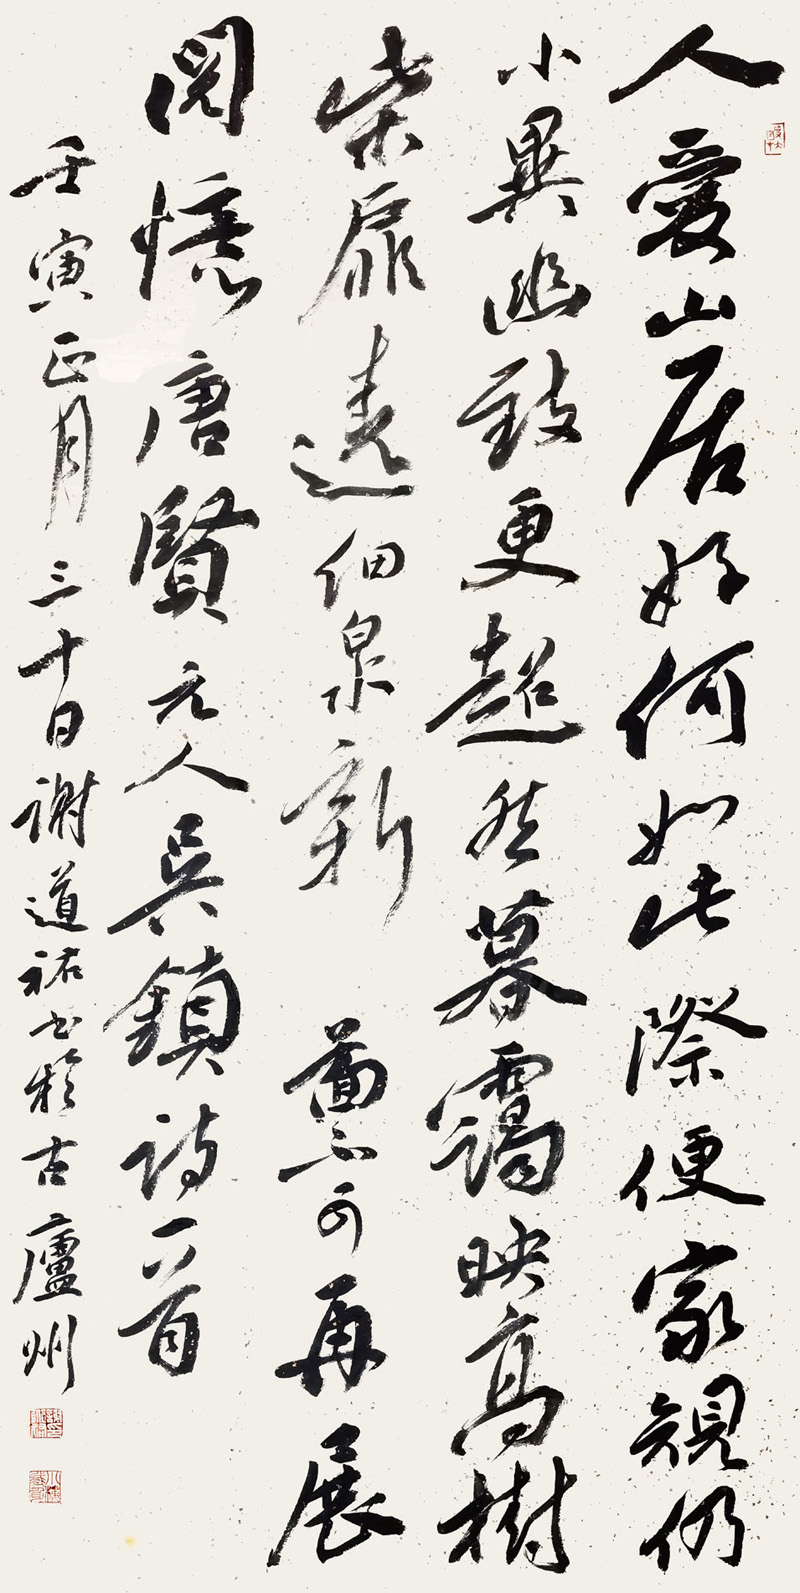 人愛山居好何如此際便家規仍
小異幽致更超然暮靄映高樹
柴扉遶細泉新圖不可再展
閱憶唐賢 元人吳鎮詩一首
壬寅正月三十日謝道祐書於古廬州